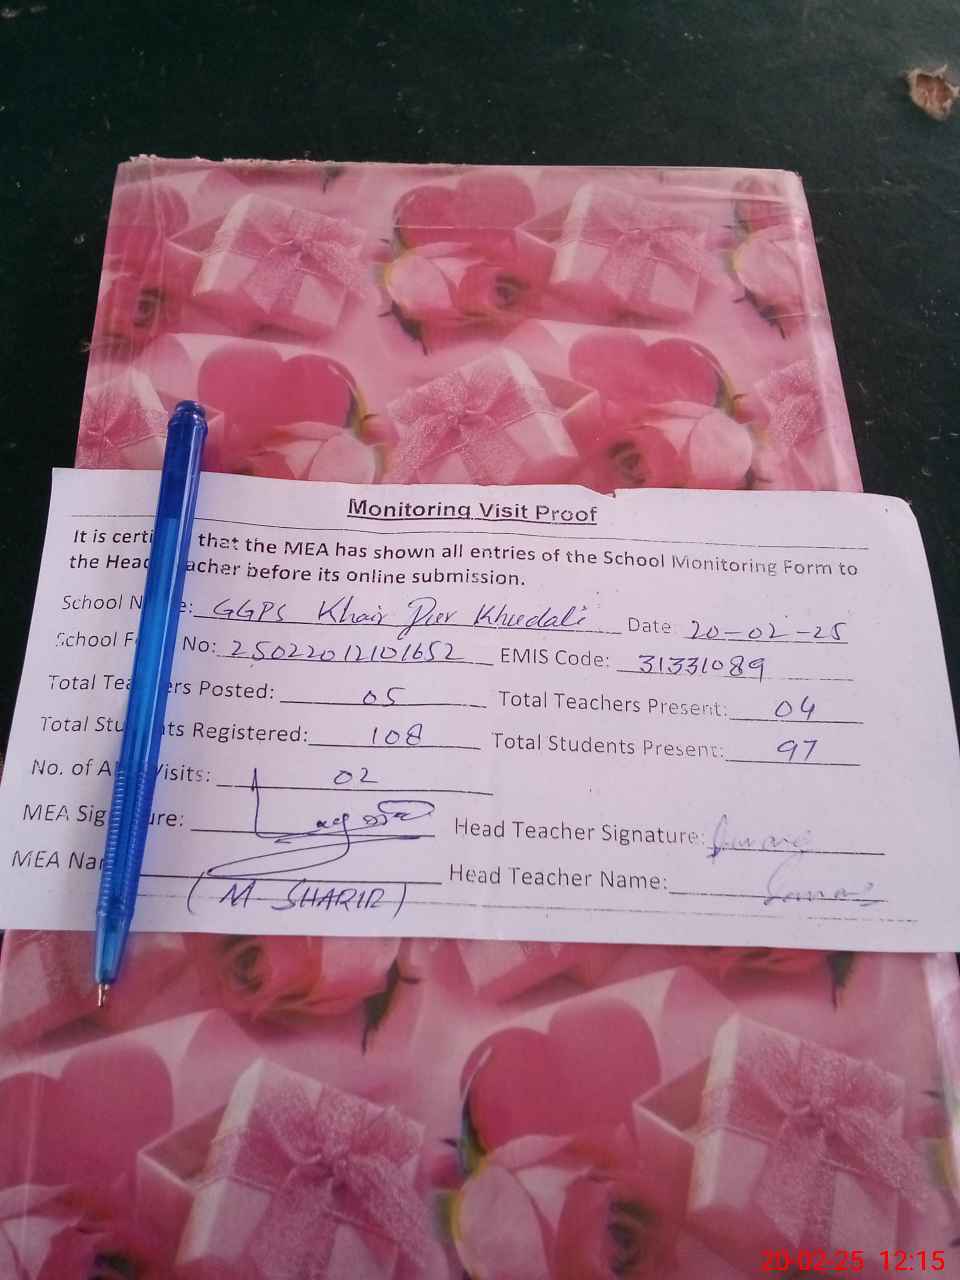 Monitoring Visit Proof
It is certi that the MEA has shown all entries of the School Monitoring Form to
the Head acher before its online submission.
School N e: GGPS Khair Pur Khudali Date: 20-02-25
School F No: 25022012101652 EMIS Code: 31331089
Total Tea rs Posted: 05 Total Teachers Present: 04
Total Stu nts Registered: 108 Total Students Present: 97
No. of A Visits: 02
MEA Sig ure: Head Teacher Signature:
MEA Nam Head Teacher Name:
(M SHARIR)
20-02-25 12:15